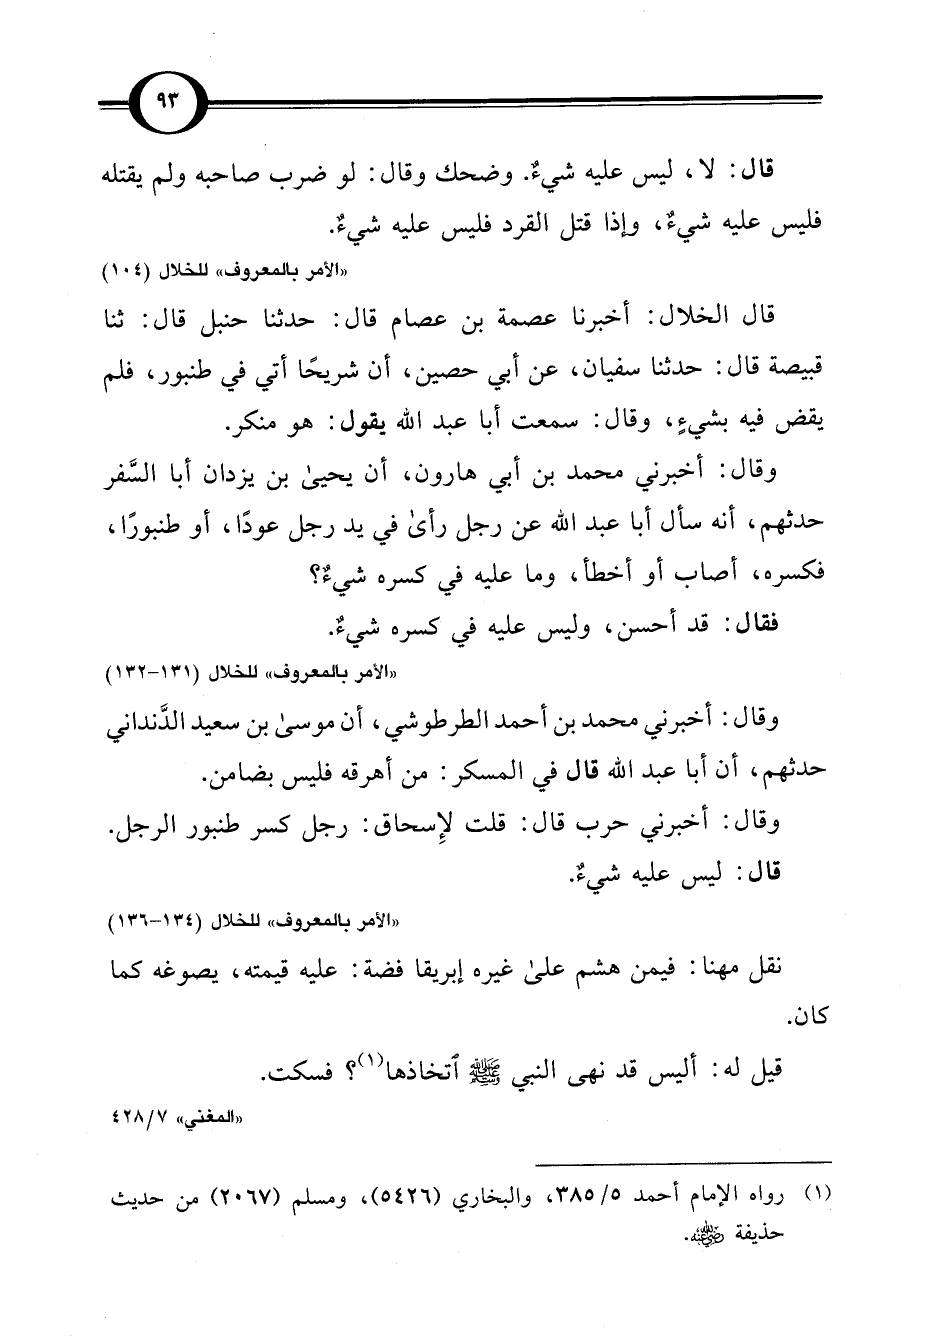 ٩٣
قال: لا، ليس عليه شيءٌ. وضحك وقال: لو ضرب صاحبه ولم يقتله
فليس عليه شيءٌ، وإذا قتل القرد فليس عليه شيءٌ.
«الأمر بالمعروف» للخلال (١٠٤)
قال الخلال: أخبرنا عصمة بن عصام قال: حدثنا حنبل قال: ثنا
قبيصة قال: حدثنا سفيان، عن أبي حصين، أن شريحًا أتي في طنبور، فلم
يقض فيه بشيءٍ، وقال: سمعت أبا عبد الله يقول: هو منكر.
وقال: أخبرني محمد بن أبي هارون، أن يحيىٰ بن يزدان أبا السَّفر
حدثهم، أنه سأل أبا عبد الله عن رجل رأىٰ في يد رجل عودًا، أو طنبورًا،
فكسره، أصاب أو أخطأ، وما عليه في كسره شيءٌ؟
فقال: قد أحسن، وليس عليه في كسره شيءٌ.
«الأمر بالمعروف» للخلال (١٣١-١٣٢)
وقال: أخبرني محمد بن أحمد الطرطوشي، أن موسىٰ بن سعيد الدَّنداني
حدثهم، أن أبا عبد الله قال في المسكر: من أهرقه فليس بضامن.
وقال: أخبرني حرب قال: قلت لإسحاق: رجل كسر طنبور الرجل.
قال: ليس عليه شيءٌ.
«الأمر بالمعروف» للخلال (١٣٤-١٣٦)
نقل مهنا: فيمن هشم علىٰ غيره إبريقا فضة: عليه قيمته، يصوغه كما
كان.
قيل له: أليس قد نهى النبي ﷺ ٱتخاذها(١)؟ فسكت.
«المغني» ٧/ ٤٢٨
(١) رواه الإمام أحمد ٥/ ٣٨٥، والبخاري (٥٤٢٦)، ومسلم (٢٠٦٧) من حديث
حذيفة رضي الله عنه.